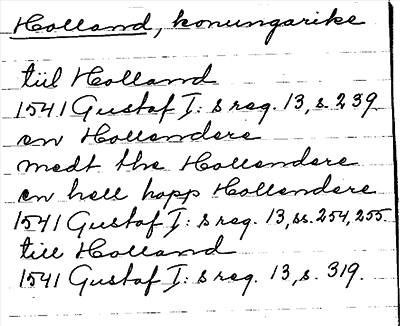 Holland, konungarike
till Holland
1541 Gustaf I: s reg. 13, s. 239
en Hollendere
medt the Hollendere
en hell hopp Hollendere
1541 Gustaf I: s reg. 13, ss. 254, 255.
till Holland
1541 Gustaf I: s reg. 13, s. 319.